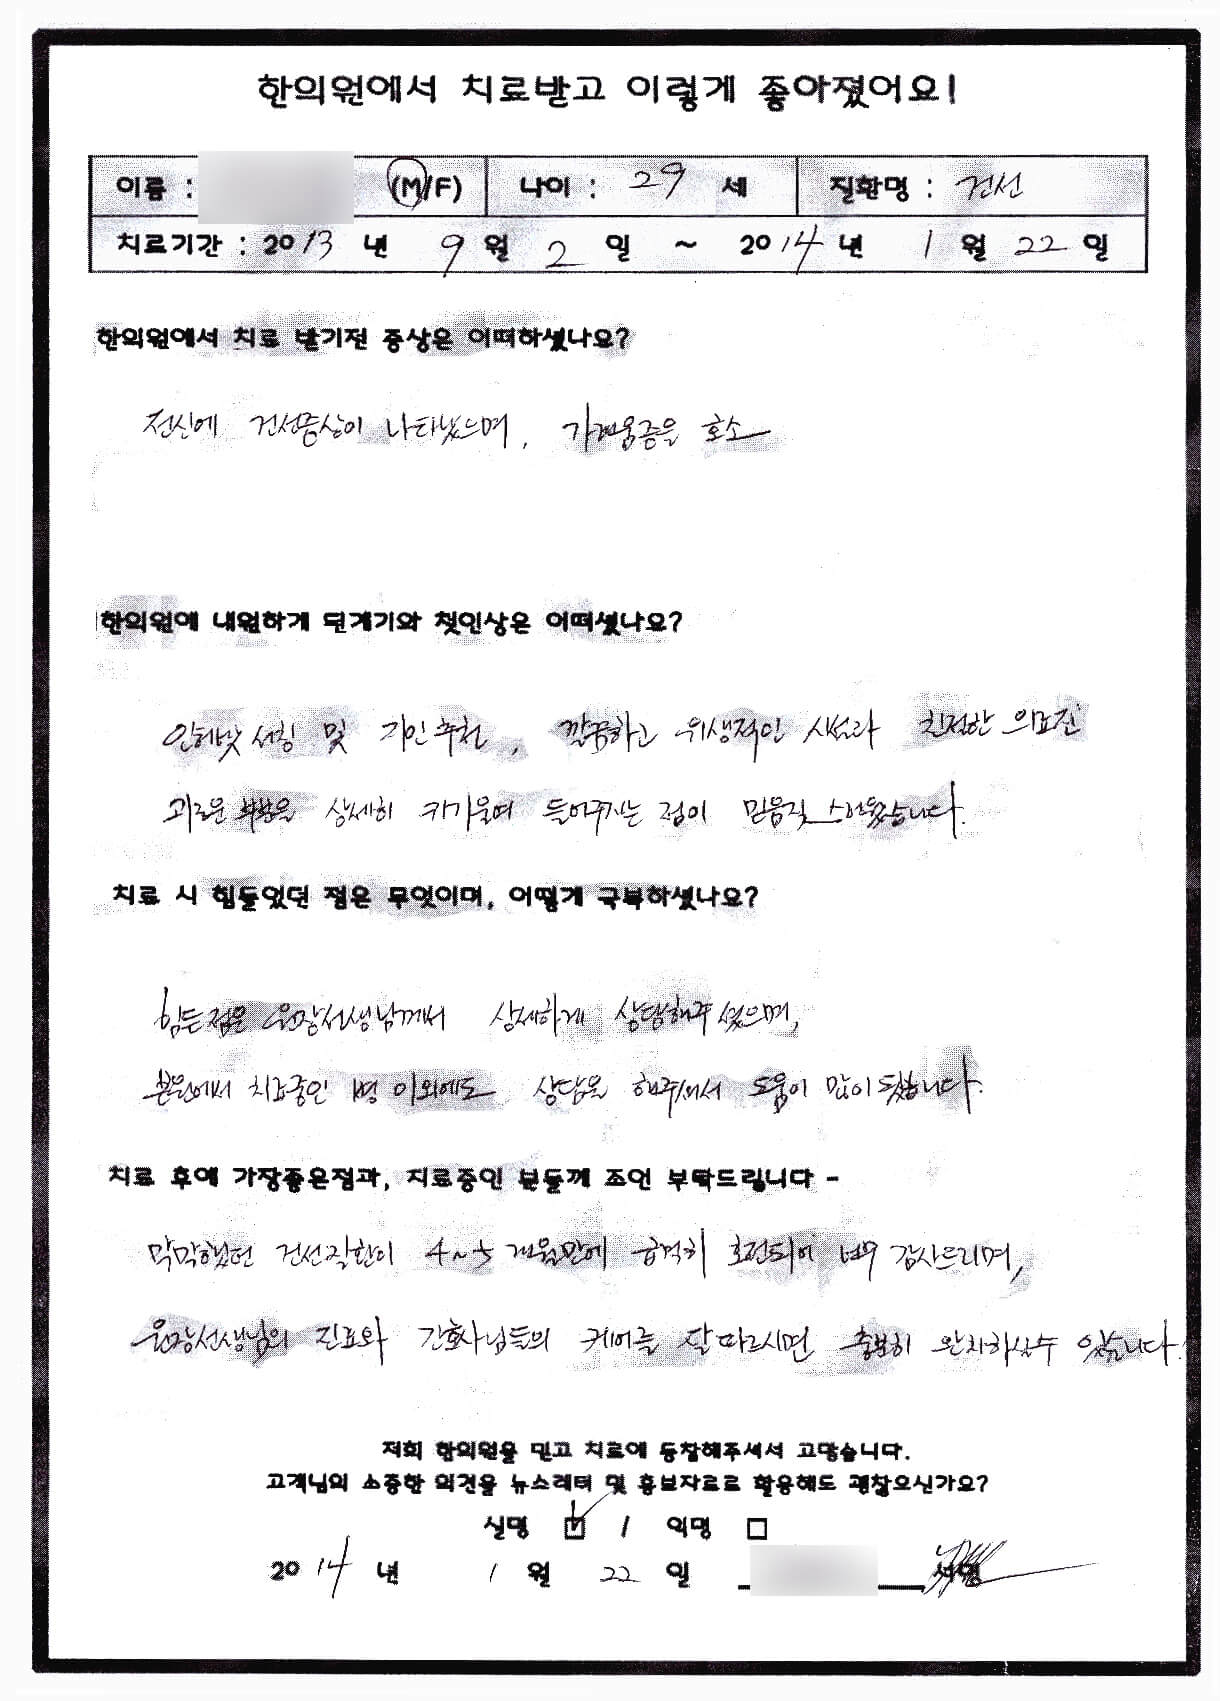 한의원에서 치료받고 이렇게 좋아졌어요!
이름 : (M/F) 나이 : 29 세 질환명 : 건선
치료기간 : 2013 년 9 월 2 일 ~ 2014 년 1 월 22 일
한의원에서 치료 받기전 증상은 어떠하셨나요?
전신에 건선증상이 나타났으며, 가려움증을 호소
한의원에 내원하게 된계기와 첫인상은 어떠셨나요?
인터넷 서칭 및 지인추천, 깔끔하고 위생적인 시설과 친절한 의료진
괴로운 상세히 귀기울여 들어주시는 점이 믿음직 스러웠습니다.
치료 시 힘들었던 점은 무엇이며, 어떻게 극복하셨나요?
힘든점은 원장선생님께서 상세하게 상담해주셨으며,
본원에서 치료중인 병 이외에도 상담을 해주셔서 도움이 많이 됐습니다.
치료 후에 가장좋은점과, 치료중인 분들께 조언 부탁드립니다 -
막막했던 건선질환이 4~5 개월만에 급격히 호전되어 너무 감사드리며,
원장선생님의 진료와 간호사님들의 케어를 잘 따르시면 충분히 완치하실수 있습니다.
저희 한의원을 믿고 치료에 동참해주셔서 고맙습니다.
고객님의 소중한 의견을 뉴스레터 및 홍보자료로 활용해도 괜찮으신가요?
실명 ☑ / 익명 □
2014 년 1 월 22 일 서명